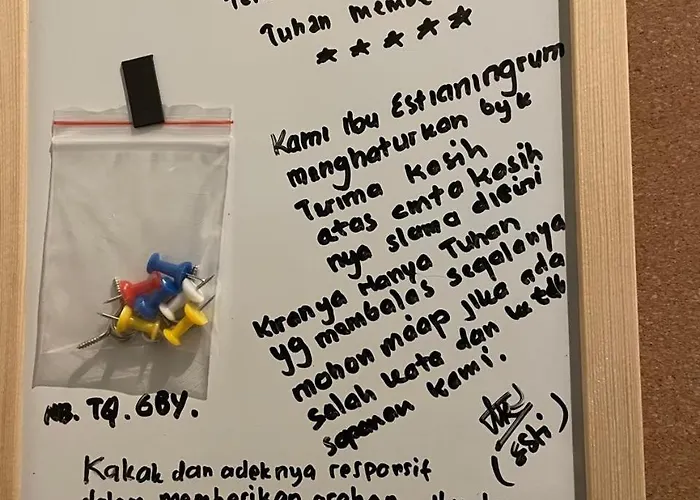 Tuhan membe
★ ★ ★ ★ ★
Kami Ibu Estianingrum
menghaturkan byk
Turima kasih
atas cinta kasih
nya slama disini
Kiranya Hanya Tuhan
yg membalas segalanya
mohon maap jika ada
salah kata dan
sapenan kami.
(Esti)
NB. TQ. GBY.
Kakak dan adeknya responsif
dalam memberikan arahan